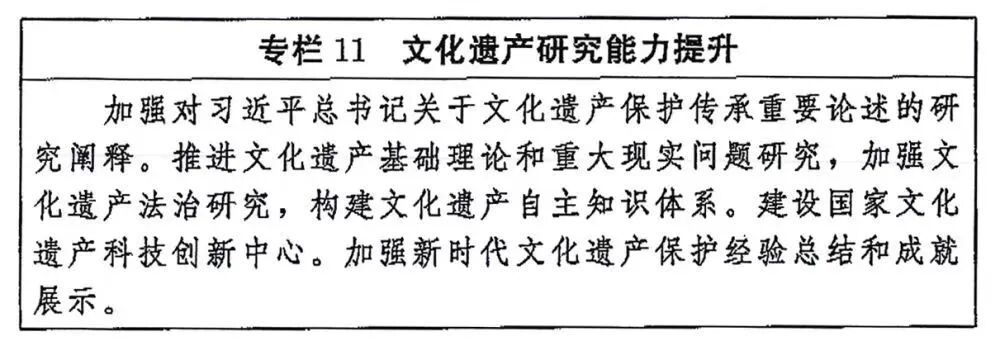 专栏 11 文化遗产研究能力提升
加强对习近平总书记关于文化遗产保护传承重要论述的研
究阐释。推进文化遗产基础理论和重大现实问题研究，加强文
化遗产法治研究，构建文化遗产自主知识体系。建设国家文化
遗产科技创新中心。加强新时代文化遗产保护经验总结和成就
展示。